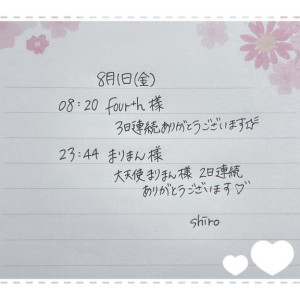 8月1日(金)
08:20 fourth様
3日連続ありがとうございます
23:44 まりまん様
大天使まりまん様 2日連続
ありがとうございます♡
shiro